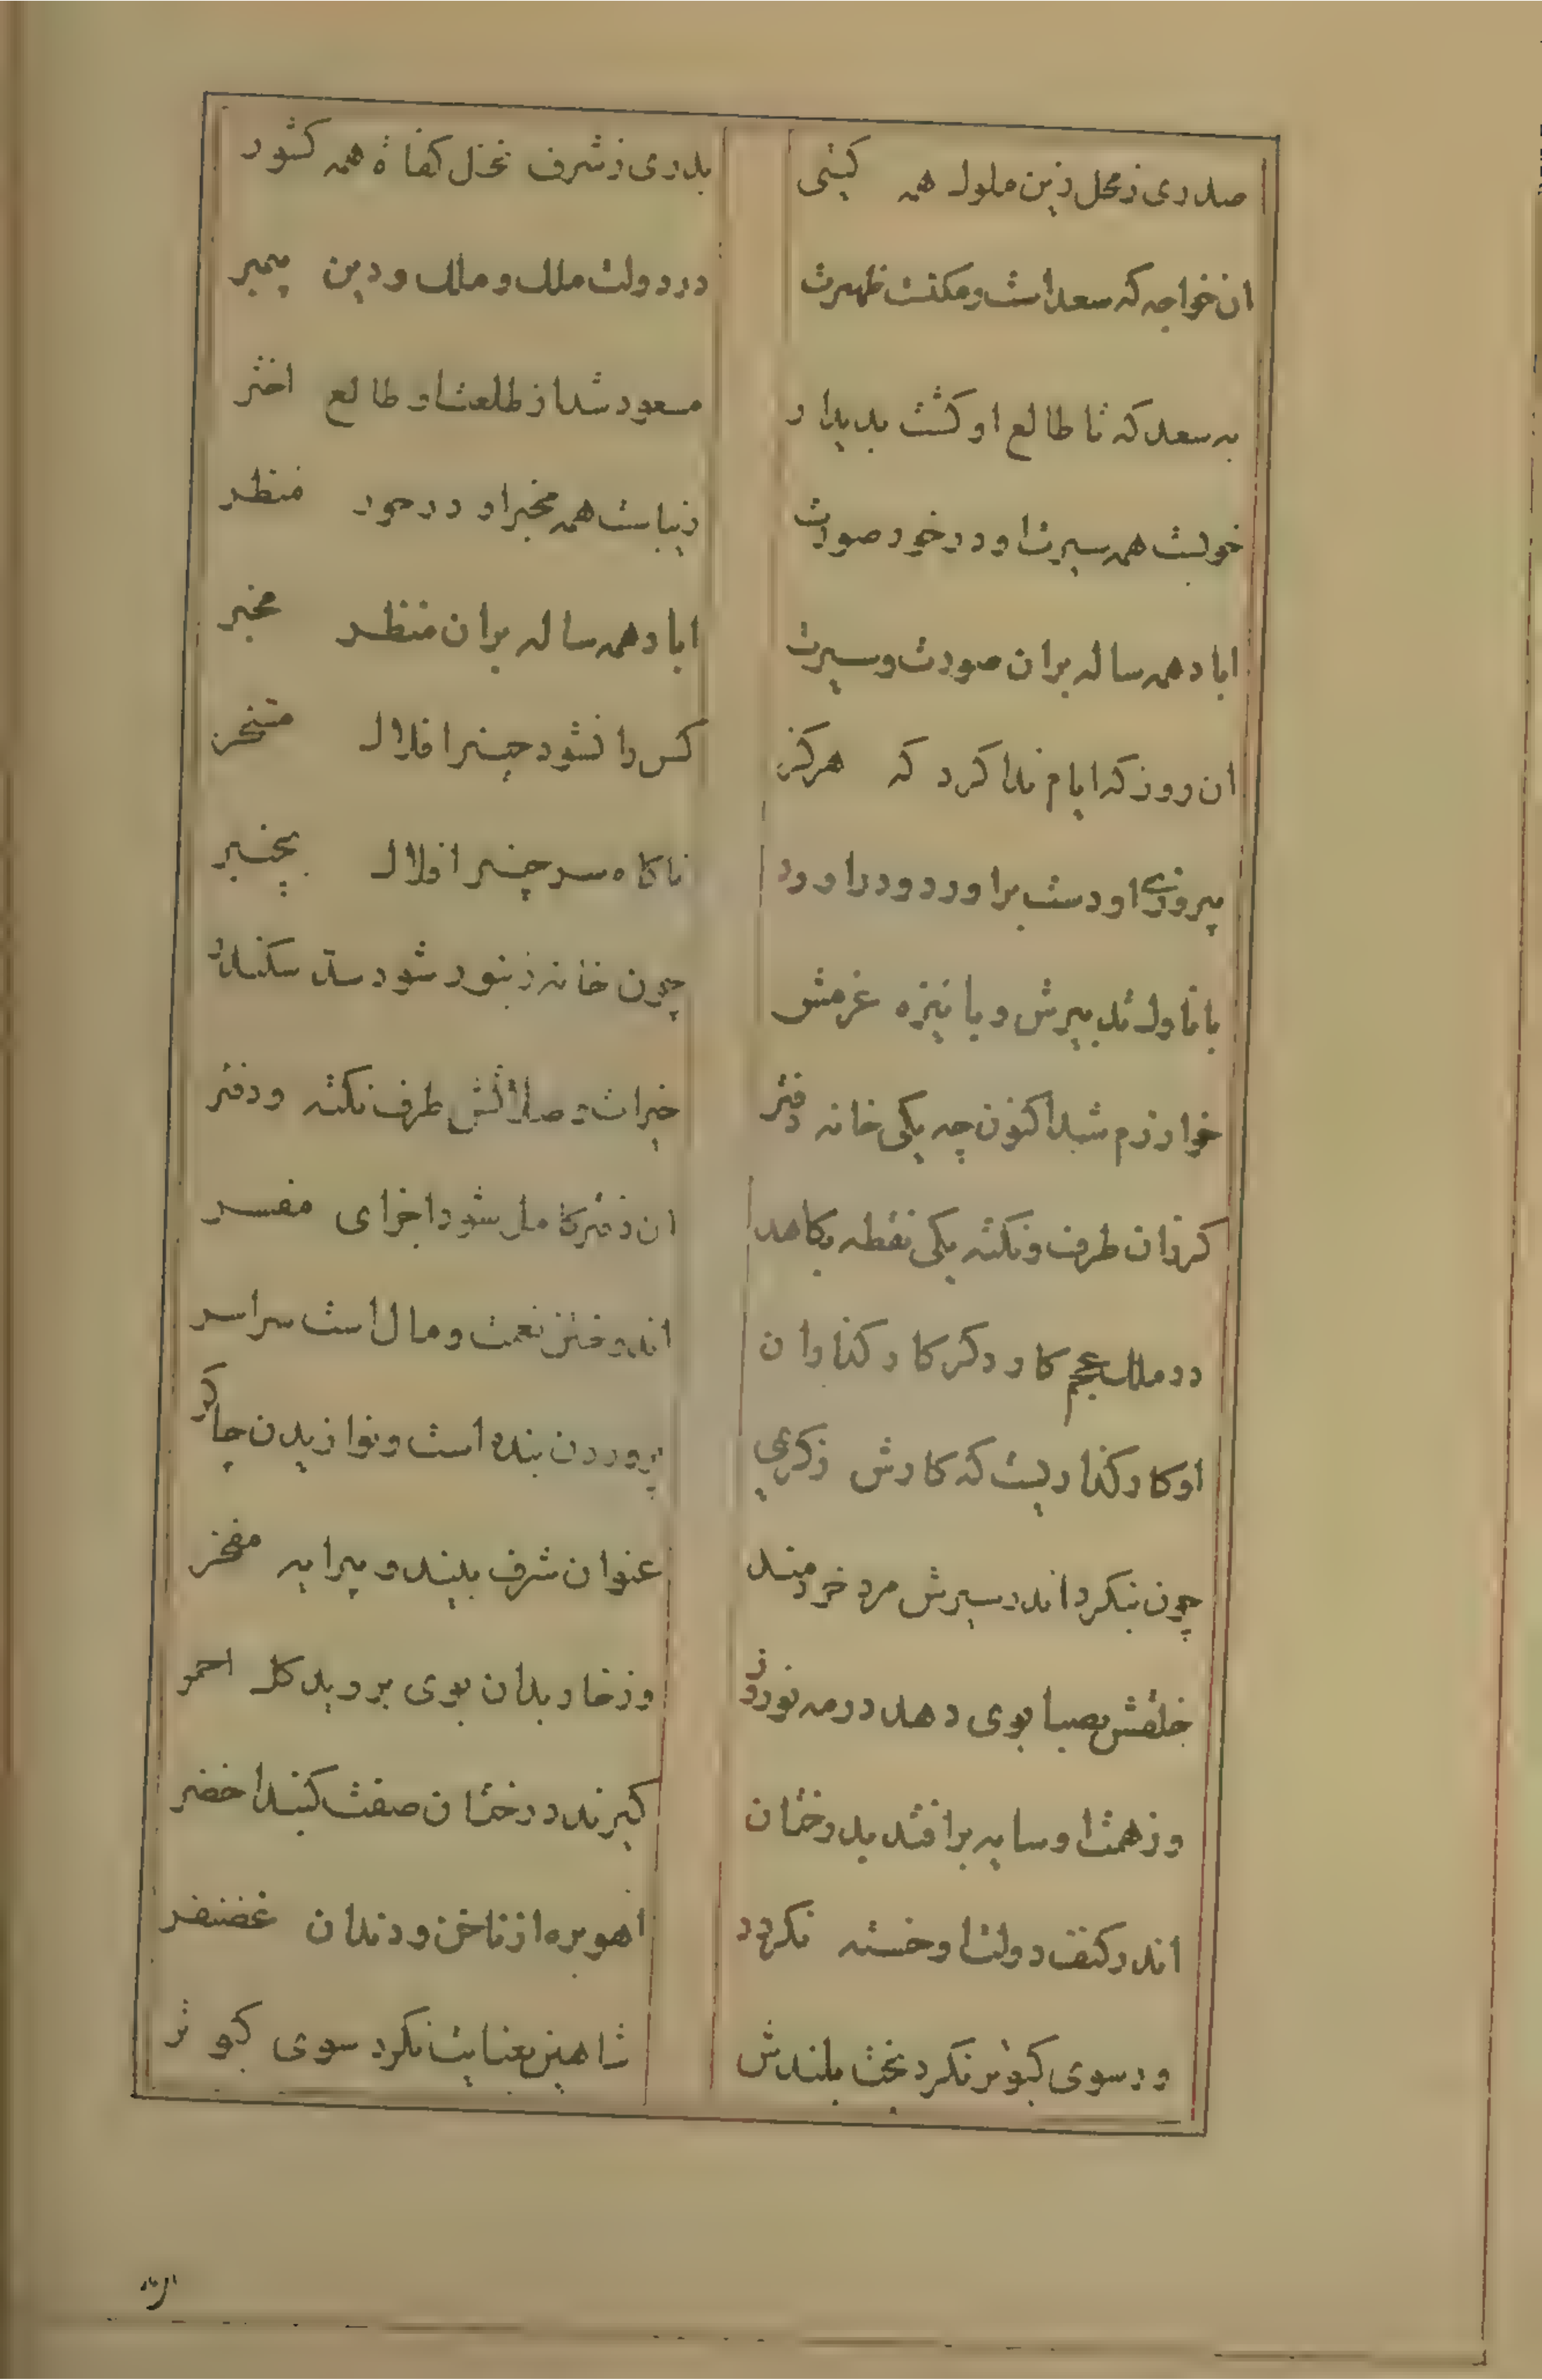 صدری ز محل زین ملوک همه کیتی
بدری ز شرف نخل کفاة همه کشور
ان خواجه که سعد است و مکنت ظهرت
در دولت ملک و ملک و دین پیمبر
به سعد که تا طالع او کشت بدیدار
مسعود شد از طلعت او طالع اختر
خوبست همه سیرت او در خود صورت
زیباست همه مخبر او در خود منظر
اباد همه ساله بران صورت و سیرت
اباد همه ساله بران منظر مخبر
ان روز که ایام ندا کرد که هرکز
کس را نشود چنبر افلاک مسخر
پیروزی او دست براورد و دراورد
ناکاه سر چنبر افلاک بچنبر
با ناوک تدبیرش و با نیزه عزمش
چون خانه زنبور شود سد سکندر
خوارزم شد اکنون چه یکی خانه دفتر
خیرات و صلاتش طرف نکته و دفتر
کز ان طرف و نکته یکی نقطه بکاهد
ان دفتر کامل شود اجزای مفسر
در ملک عجم کار دکر کارکناران
اندوختن نعمت و مال است سراسر
او کارکناریست که کارش ز کریمی
پروردن بنده است و نوازیدن چاکر
چون بنکرد اندر سیرش مرد خردمند
عنوان شرف بیند و پیرایه مفخر
خلقش بصبا بوی دهد در مه نوروز
وز خار بدان بوی بروید کل احمر
وز همت او سایه بر افتد بدرختان
کیرند درختان صفت کنبد اخضر
اندر کنف دولت او خسته نکردد
اهو بره از ناخن و دندان غضنفر
ور سوی کبوتر نکرد بخت بلندش
شاهین بعنایت نکرد سوی کبوتر